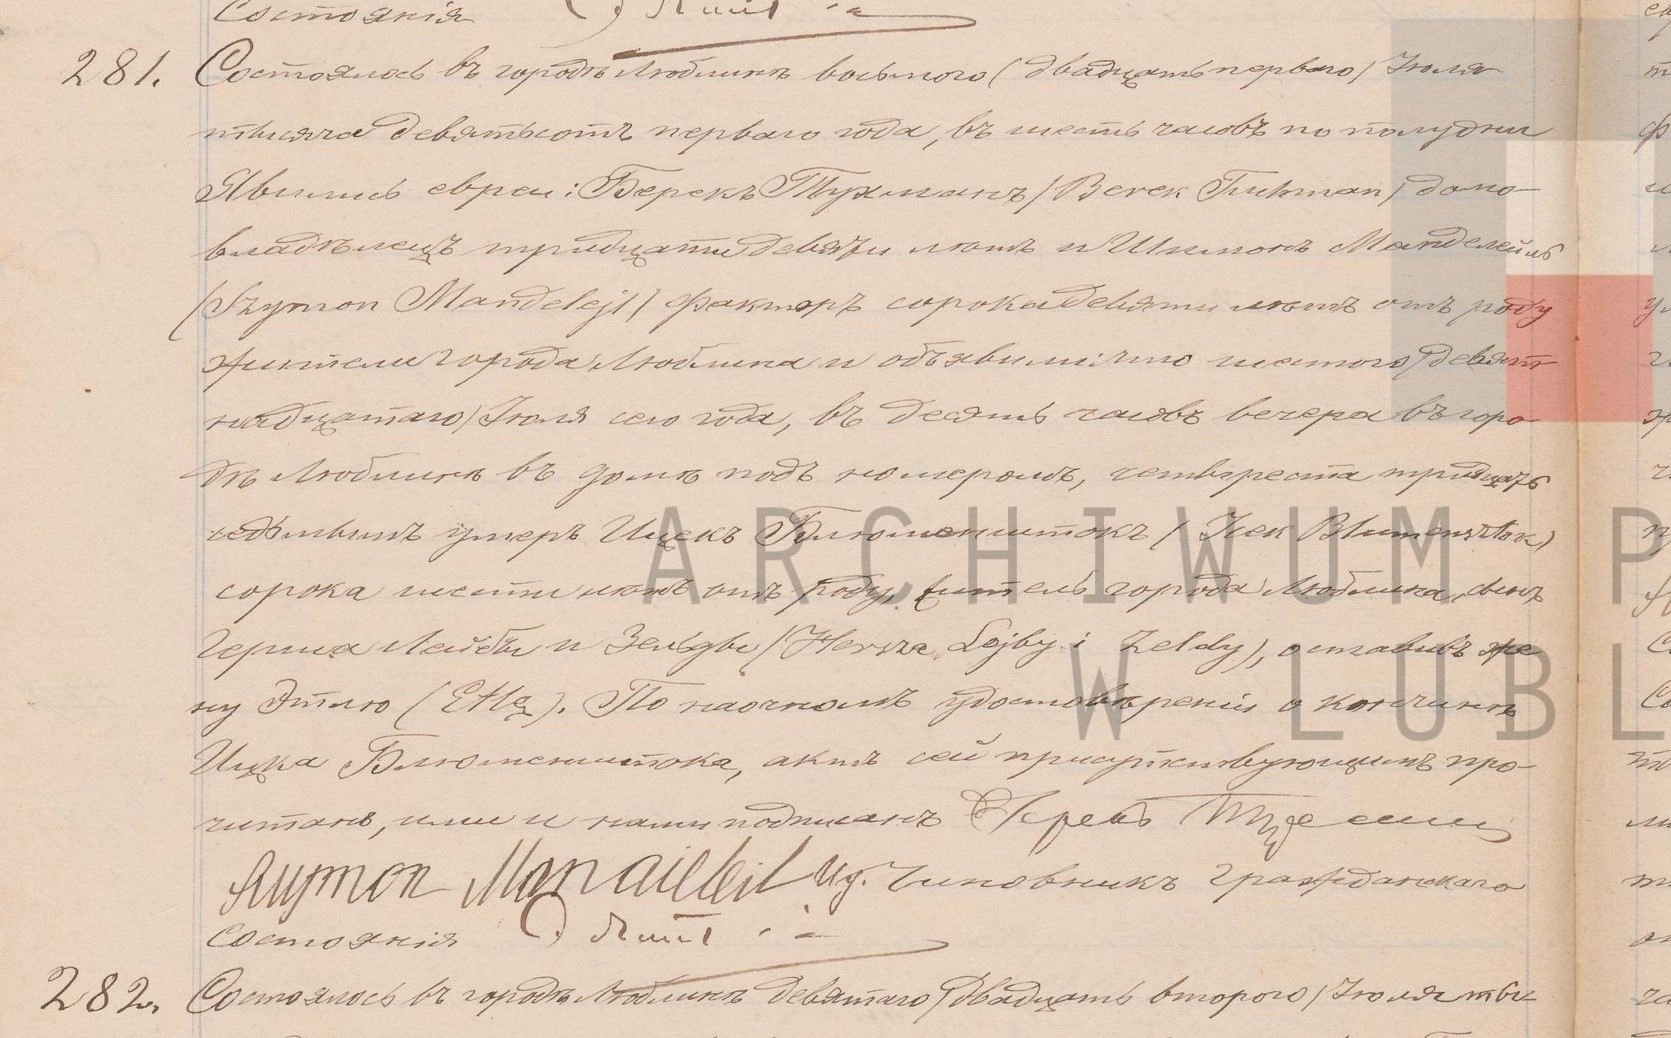 Состоянія
281. Состоялось въ городѣ Люблинѣ восьмого (двадцать перваго) Іюля
тысяча девятьсотъ перваго года, въ шесть часовъ по полудни
Явились евреи: Берекъ Тухманъ (Berek Tuchman) домо-
владѣлецъ тридцати девяти лѣтъ и Шимонъ Манделейль
(Szymon Mandelejl) факторъ сорока девяти лѣтъ отъ роду
жители города Люблина и объявили, что шестого (девят
надцатаго) Іюля сего года, въ десять часовъ вечера въ горо-
дѣ Люблинѣ въ домѣ подъ номеромъ, четвереста тридцать
седьмымъ умеръ Ицекъ Блюменштокъ (Icek Blumensztok)
сорока шести лѣтъ отъ роду, житель города Люблина, сынъ
Герша Лейбы и Зельды (Hersza Lejby i Zeldy), оставивъ же
ну Этлю (Etlę). По наочномъ удостовѣреніи о кончинѣ
Ицка Блюменштока, актъ сей присутствующимъ про-
читанъ, ими и нами подписанъ
Szymon Mandelleil Ид. Чиновникъ Гражданскаго
Состоянія
282. Состоялось въ городѣ Люблинѣ девятаго (двадцать второго) Іюля ты-
ARCHIWUM P
W LUBL